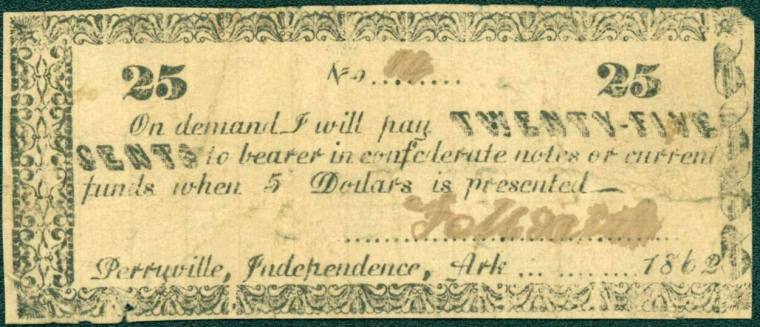 25 No ........ 25
On demand I will pay TWENTY-FIVE
CENTS to bearer in confederate notes or current
funds when 5 Dollars is presented—
Perryville, Independence, Ark ... ........ 1862